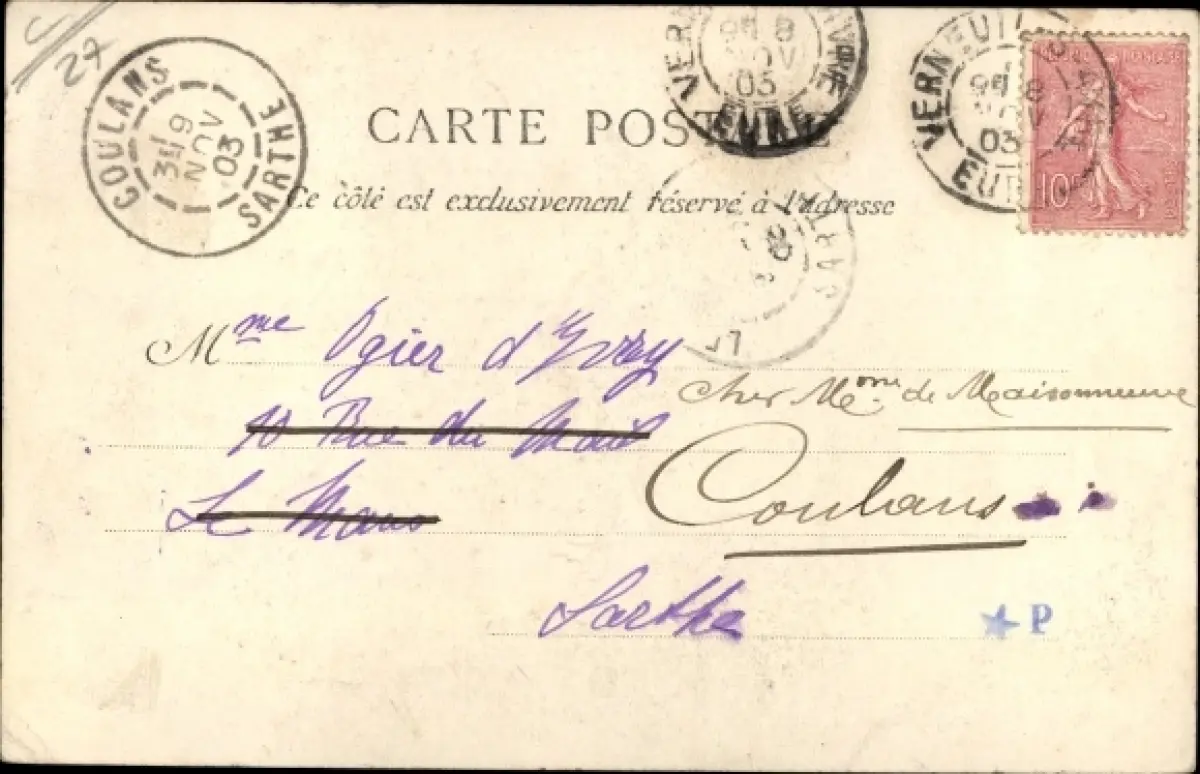 27
COULANS
3E 9
NOV
03
SARTHE
8
NOV
03
EURE
VERNEUIL
8
03
EUR
10
CARTE POSTALE
Ce côté est exclusivement réservé à l'adresse
SART
Mme Ogier d'Yvry
chez Mme de Maisonneuve
10 Rue du Mail
Coulans
Le Mans
Sarthe
P